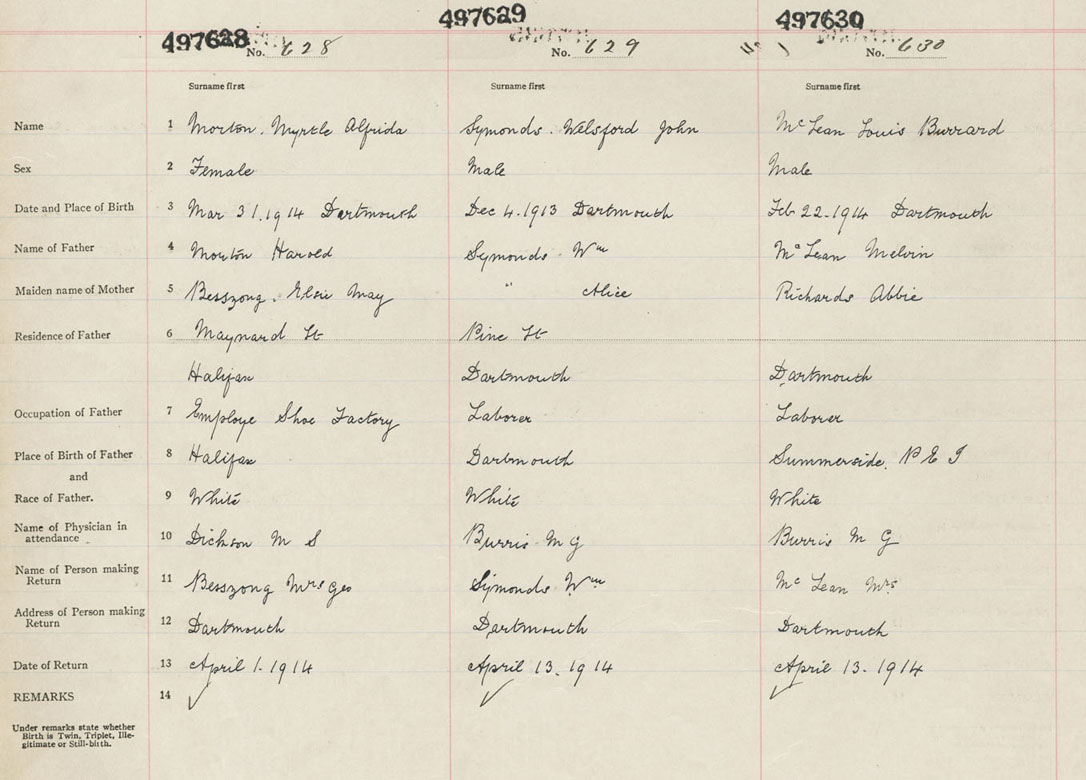 497628 497629 497630
No. 628 No. 629 No. 630
Surname first Surname first Surname first
Name 1 Morton. Myrtle Alfrida Symonds. Welsford John McLean Louis Burrard
Sex 2 Female Male Male
Date and Place of Birth 3 Mar 31.1914 Dartmouth Dec 4.1913 Dartmouth Feb 22-1914 Dartmouth
Name of Father 4 Morton Harold Symonds Wm McLean Melvin
Maiden name of Mother 5 Besszong. Elsie May " Alice Richards Abbie
Residence of Father 6 Maynard St Pine St
Halifax Dartmouth Dartmouth
Occupation of Father 7 Employe Shoe Factory Laborer Laborer
Place of Birth of Father 8 Halifax Dartmouth Summerside. P E I
and
Race of Father. 9 White White White
Name of Physician in
attendance 10 Dickson M S Burris M G Burris M G
Name of Person making
Return 11 Besszong Mrs Geo Symonds Wm Mc Lean Mrs
Address of Person making
Return 12 Dartmouth Dartmouth Dartmouth
Date of Return 13 April 1. 1914 April 13. 1914 April 13. 1914
REMARKS 14 ✓ ✓ ✓
Under remarks state whether
Birth is Twin, Triplet, Ille-
gitimate or Still-birth.